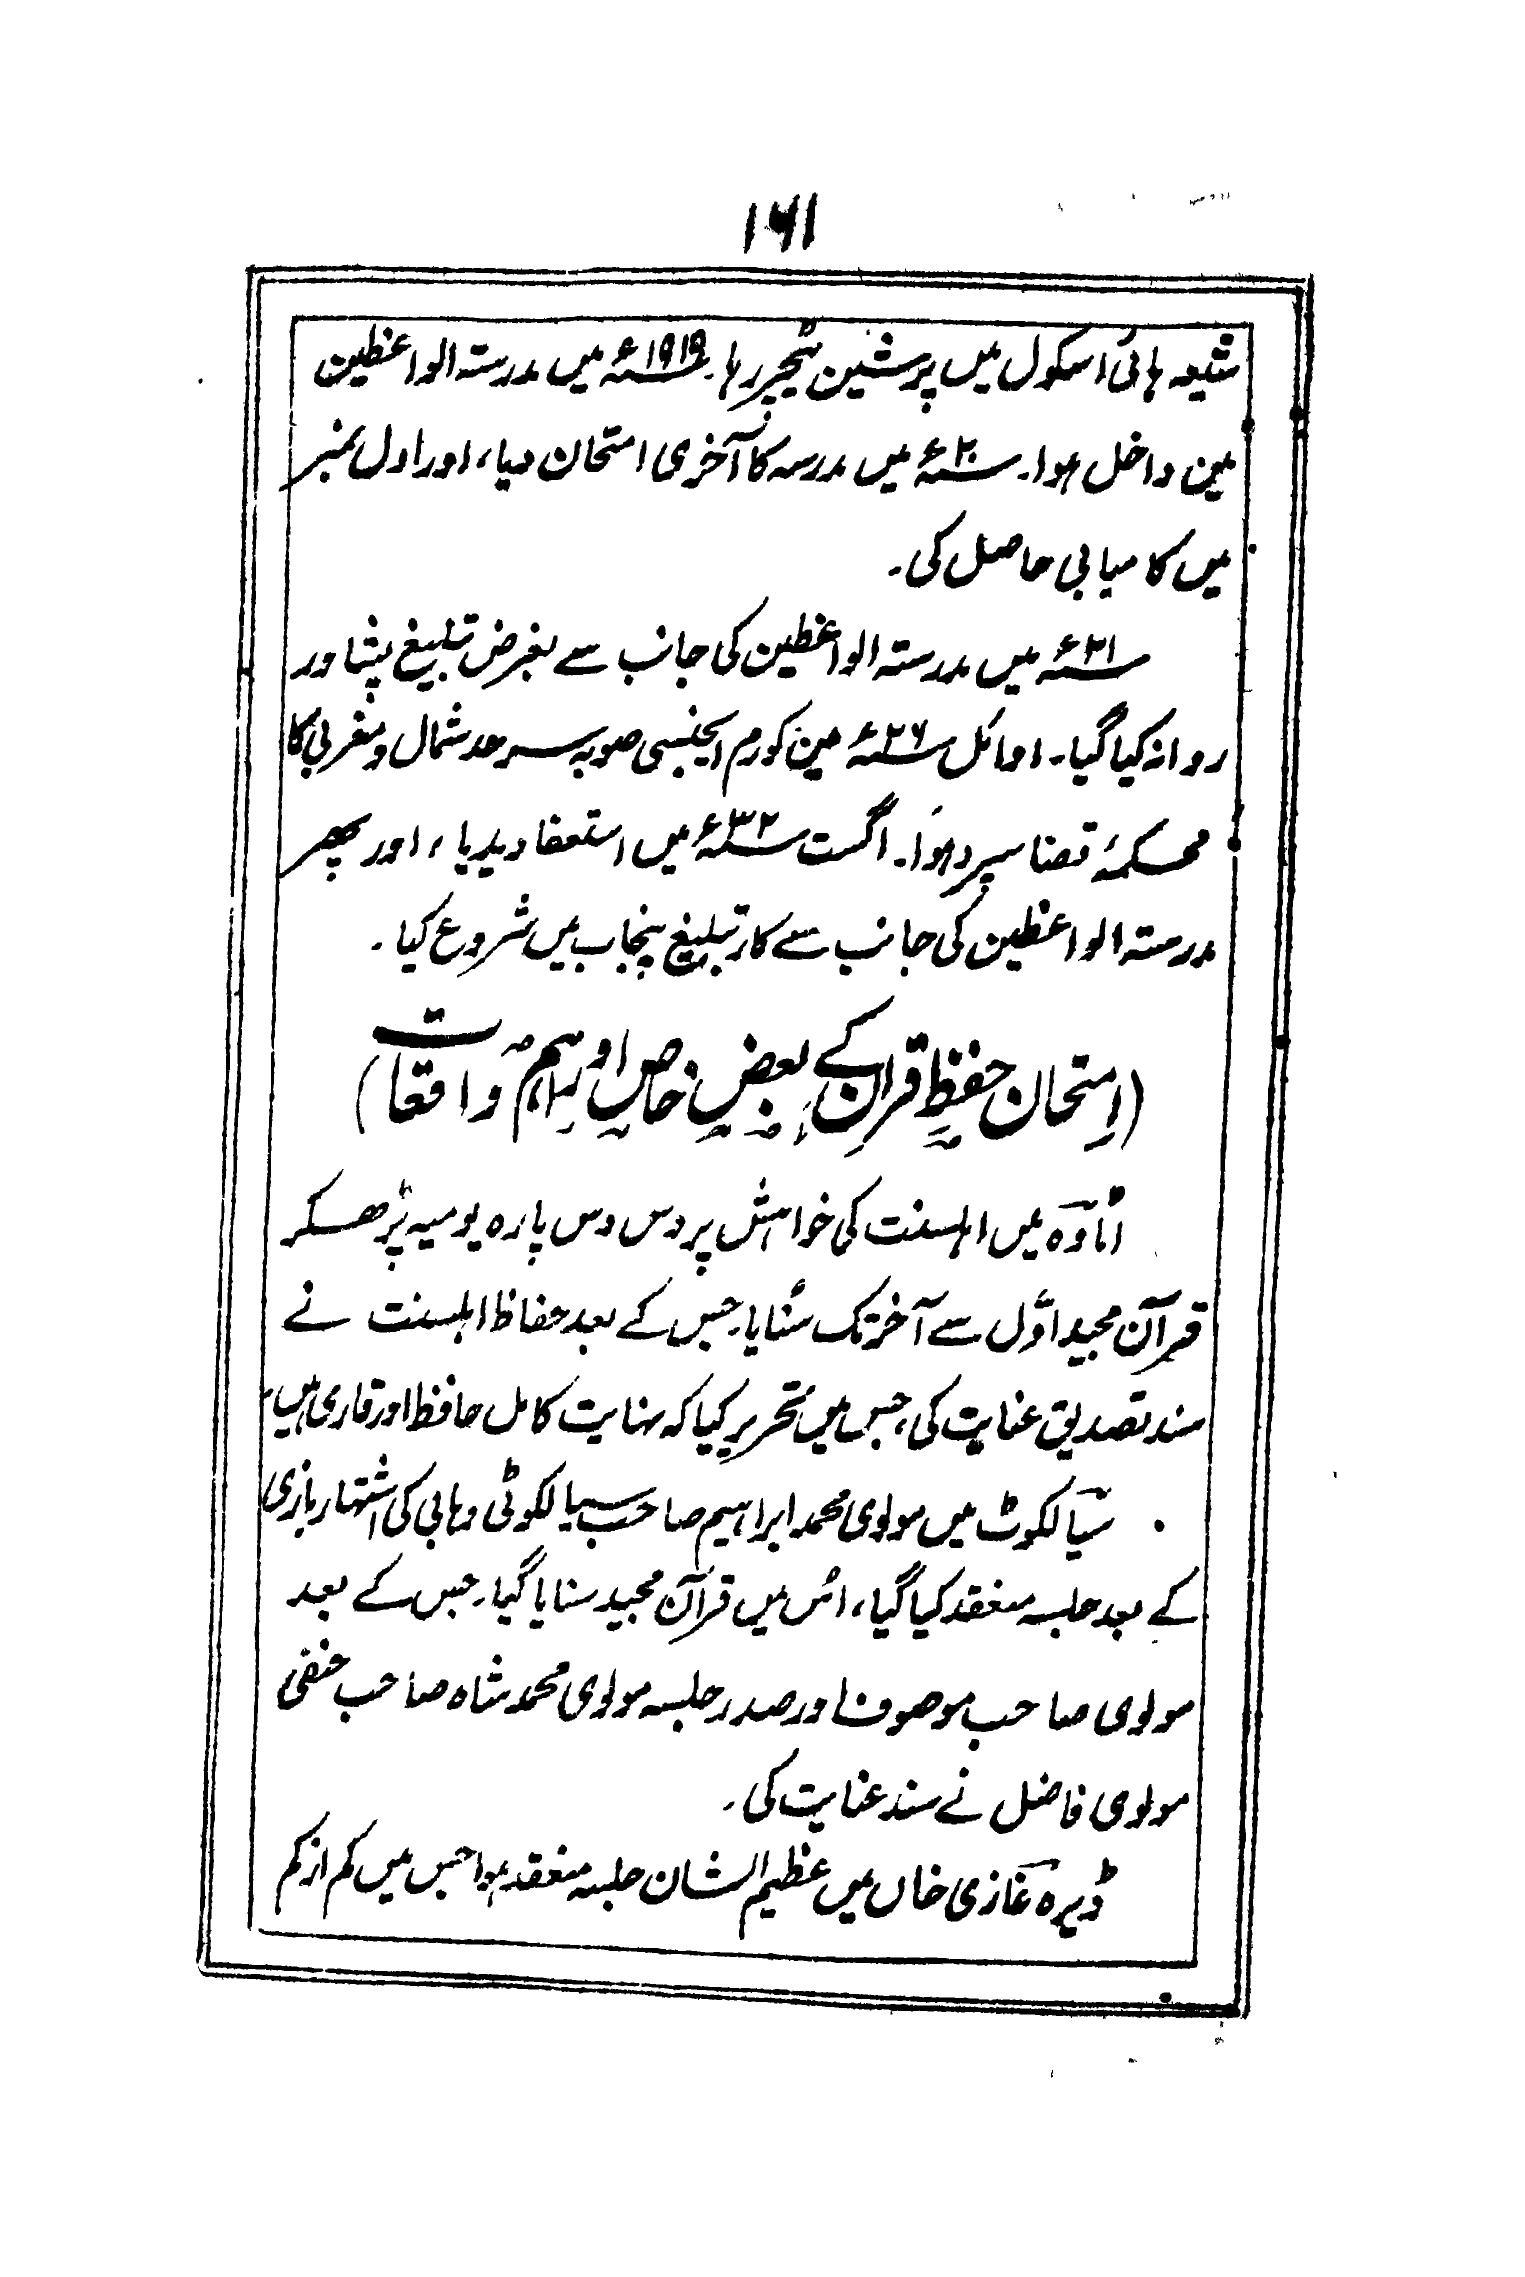 ۱۶۱
شیعہ ہائی اسکول میں پرشین ٹیچر رہا۔ ۱۹۱۹ء میں مدرستہ الواعظین
مین داخل ہوا۔ ۲۰ء میں مدرسہ کا آخری امتحان دیا، اور اول نمبر
میں کامیابی حاصل کی۔
۲۱ء میں مدرستہ الواعظین کی جانب سے بغرض تبلیغ پشاور
روانہ کیا گیا۔ اوائل ۲۶ء مین کورم ایجنسی صوبہ سرحد شمال و مغربی کا
محکمۂ قضا سپرد ہوا۔ اگست ۳۲ء میں استعفا دیدیا، اور پھر
مدرستہ الواعظین کی جانب سے کار تبلیغ پنجاب میں شروع کیا۔
(امتحان حفظِ قرآن کے بعض خاص اور اہم واقعات)
اٹاوہ میں اہلسنت کی خواہش پر دس دس پارہ یومیہ پڑھکر
قرآن مجید اوّل سے آخر تک سُنایا۔ جس کے بعد حفاظ اہلسنت نے
سند تصدیق عنایت کی، جس میں تحریر کیا کہ نہایت کامل حافظ اور قاری ہیں۔
سیالکوٹ میں مولوی محمد ابراہیم صاحب سیالکوٹی وہابی کی اشتہار بازی
کے بعد جلسہ منعقد کیا گیا، اُس میں قرآن مجید سنایا گیا۔ جس کے بعد
مولوی صاحب موصوف اور صدر جلسہ مولوی محمد شاہ صاحب حنفی
مولوی فاضل نے سند عنایت کی۔
ڈیرہ غازی خاں میں عظیم الشان جلسہ منعقد ہوا جس میں کم از کم